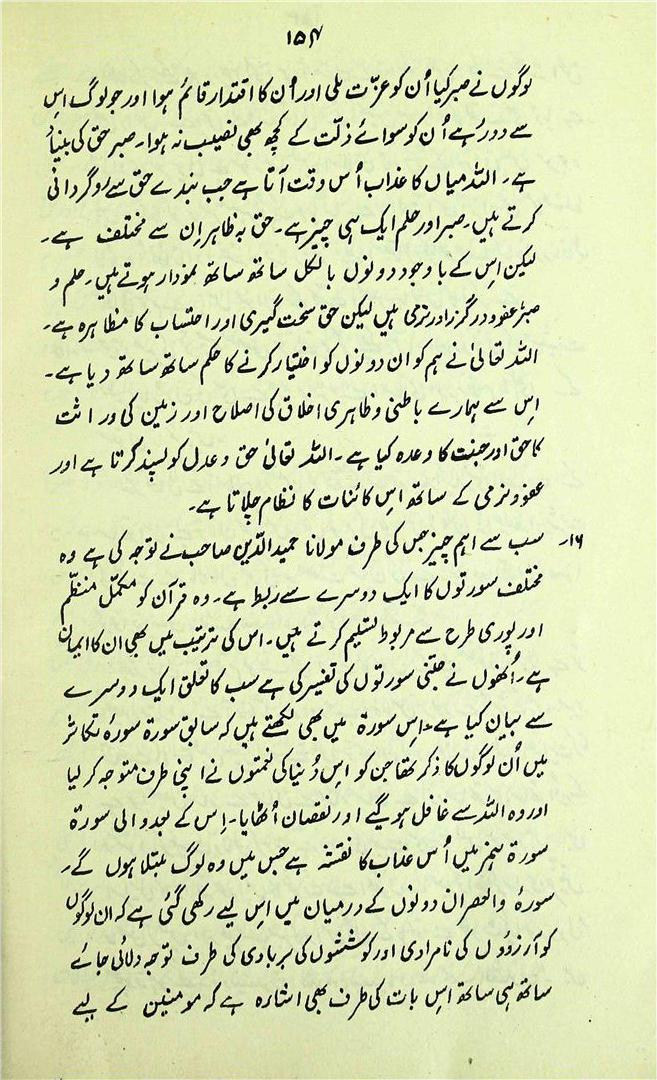 ۱۵۴
لوگوں نے صبر کیا اُن کو عزّت ملی اور اُن کا اقتدار قائم ہوا اور جو لوگ اس
سے دور رہے اُن کو سوائے ذلّت کے کچھ بھی نصیب نہ ہوا۔ صبر حق کی بنیاد
ہے۔ اللہ میاں کا عذاب اُس وقت آتا ہے جب بندے حق سے روگردانی
کرتے ہیں۔ صبر اور حلم ایک ہی چیز ہے۔ حق بہ ظاہر اِن سے مختلف ہے۔
لیکن اس کے باوجود دونوں بالکل ساتھ ساتھ نمودار ہوتے ہیں۔ حلم و
صبر، عفو و درگزر اور نرمی ہیں لیکن حق سخت گیری اور احتساب کا مظاہرہ ہے۔
اللہ تعالیٰ نے ہم کو ان دونوں کو اختیار کرنے کا حکم ساتھ ساتھ دیا ہے۔
اس سے ہمارے باطنی و ظاہری اخلاق کی اصلاح اور زمین کی وراثت
کا حق اور جنت کا وعدہ کیا ہے۔ اللہ تعالیٰ حق و عدل کو پسند کرتا ہے اور
عفو و نرمی کے ساتھ اس کائنات کا نظام چلاتا ہے۔
۱۶۔ سب سے اہم چیز جس کی طرف مولانا حمید الدّین صاحب نے توجہ کی ہے وہ
مختلف سورتوں کا ایک دوسرے سے ربط ہے۔ وہ قرآن کو مکمّل منظّم
اور پوری طرح سے مربوط تسلیم کرتے ہیں۔ اس کی ترتیب میں بھی ان کا ایمان
ہے۔ اُنھوں نے جتنی سورتوں کی تفسیر کی ہے سب کا تعلق ایک دوسرے
سے بیان کیا ہے۔ اِس سورۃ میں بھی لکھتے ہیں کہ سابق سورۃ سورۂ تکاثر
میں اُن لوگوں کا ذکر تھا جن کو اس دُنیا کی نعمتوں نے اپنی طرف متوجہ کر لیا
اور وہ اللہ سے غافل ہو گیے اور نقصان اُٹھایا۔ اِس کے بعد والی سورۃ
سورۃ ہمزہ میں اُس عذاب کا نقشہ ہے جس میں وہ لوگ مبتلا ہوں گے۔
سورۂ والعصر ان دونوں کے درمیان میں اس لیے رکھی گئی ہے کہ ان لوگوں
کو آرزوؤں کی نامرادی اور کوششوں کی بربادی کی طرف توجہ دلائی جائے
ساتھ ہی ساتھ اس بات کی طرف بھی اشارہ ہے کہ مومنین کے لیے